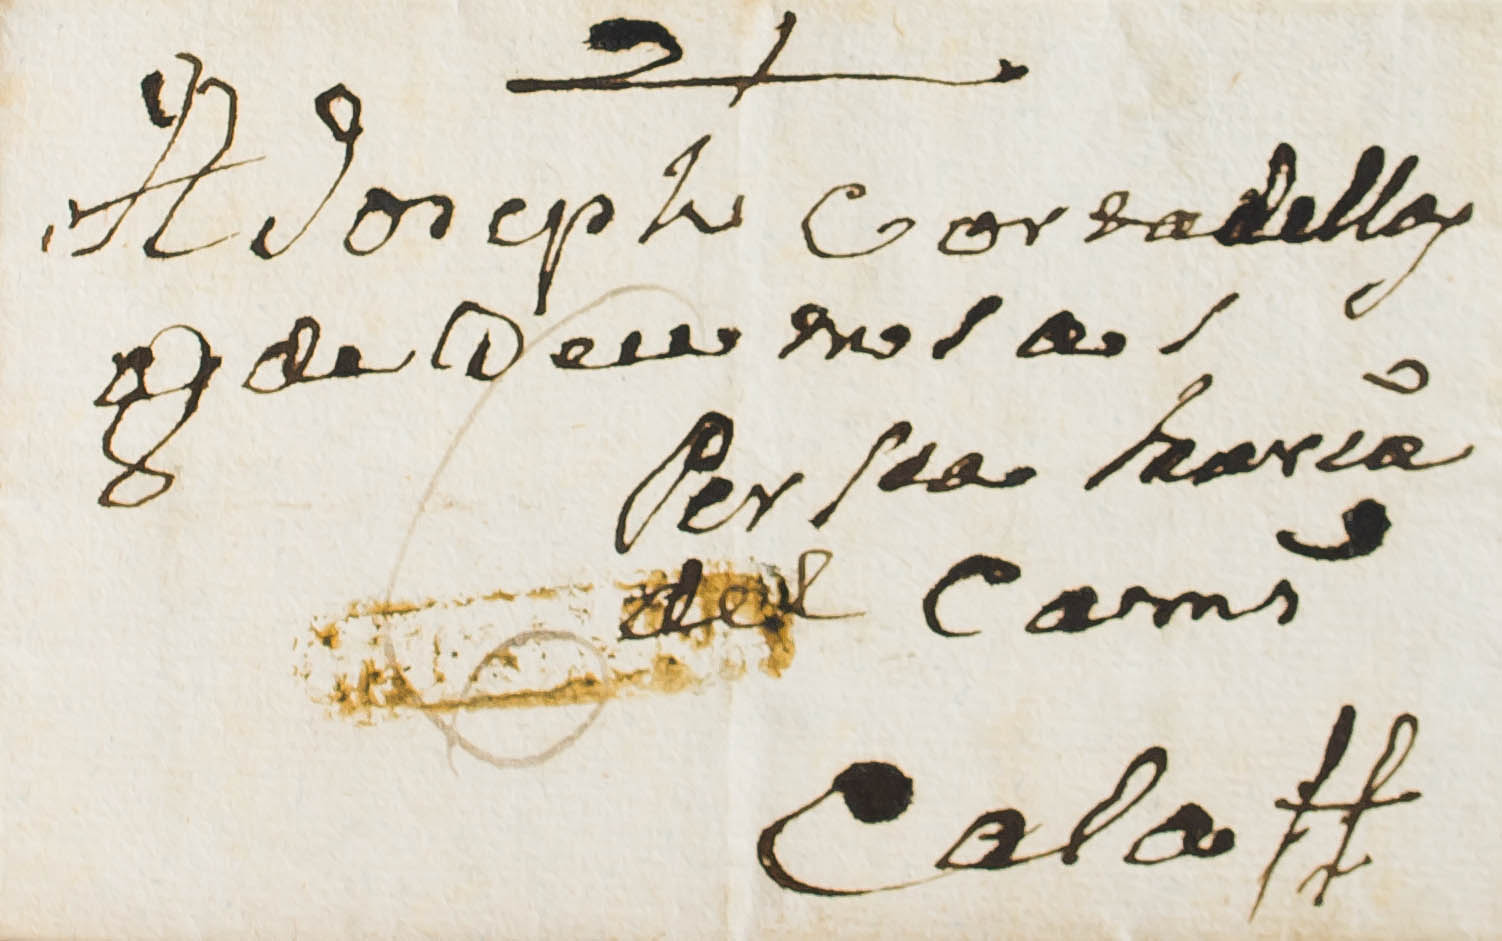 A Joseph Cortadellas
g de Deu mol as
Per Sta Maria
del Cami
Calaff